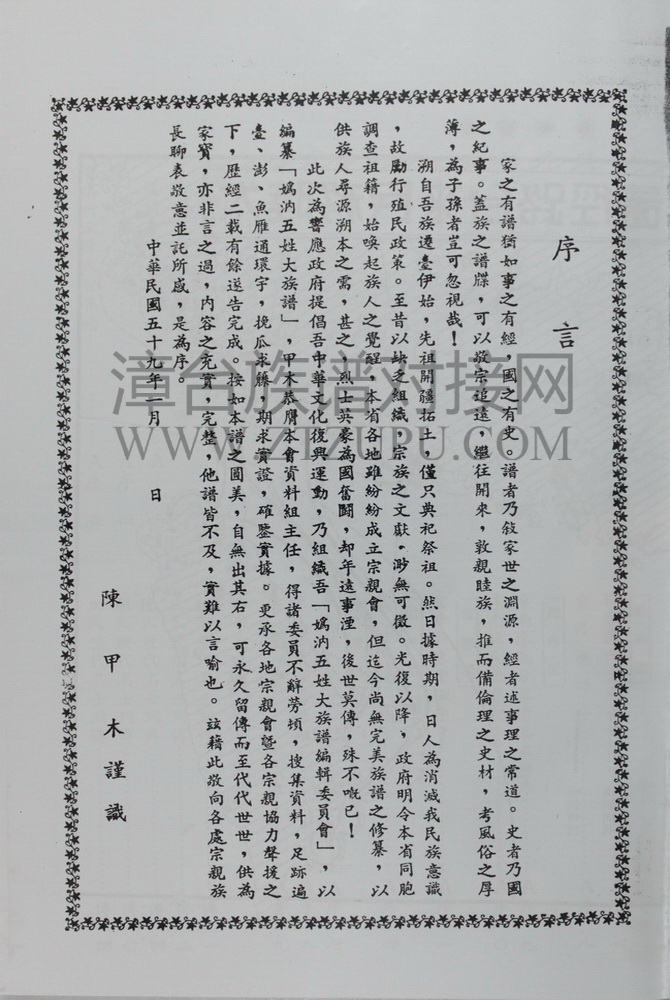 序言
家之有譜猶如事之有經，國之有史。譜者乃敍家世之淵源，經者述事理之常道。史者乃國
之紀事。蓋族之譜牒，可以敬宗追遠，繼往開來，敦親睦族，推而備倫理之史材，考風俗之厚
薄，為子孫者豈可忽視哉！
溯自吾族遷臺伊始，先祖開疆拓土，僅只典祀祭祖。然日據時期，日人為消滅我民族意識
，故勵行殖民政策。至昔以缺乏組織，宗族之文獻，渺無可徵。光復以降，政府明令本省同胞
調查祖籍，始喚起族人之覺醒，本省各地雖紛紛成立宗親會，但迄今尚無完美族譜之修纂，以
供族人尋源溯本之需，甚之，烈士英豪為國奮鬪，却年遠事湮，後世莫傳，殊不嘅已！
此次為響應政府提倡吾中華文化復興運動，乃組織吾「媯汭五姓大族譜編輯委員會」，以
編纂「媯汭五姓大族譜」，甲木恭膺本會資料組主任，得諸委員不辭勞頓，搜集資料，足跡遍
臺、澎、魚雁通環宇，挽瓜求籐，期求實證，確鑒實據。更承各地宗親會暨各宗親協力聲援之
下，歷經二載有餘送告完成。按如本譜之圓美，自無出其右，可永久留傳而至代代世世，供為
家寶，亦非言之過，內容之充實，完整，他譜皆不及，實難以言喻也。玆藉此敬向各處宗親族
長聊表敬意並託所感，是為序。
中華民國五十九年一月　日
陳甲木謹識
漳台族谱对接网
WWW.ZIZUPU.COM